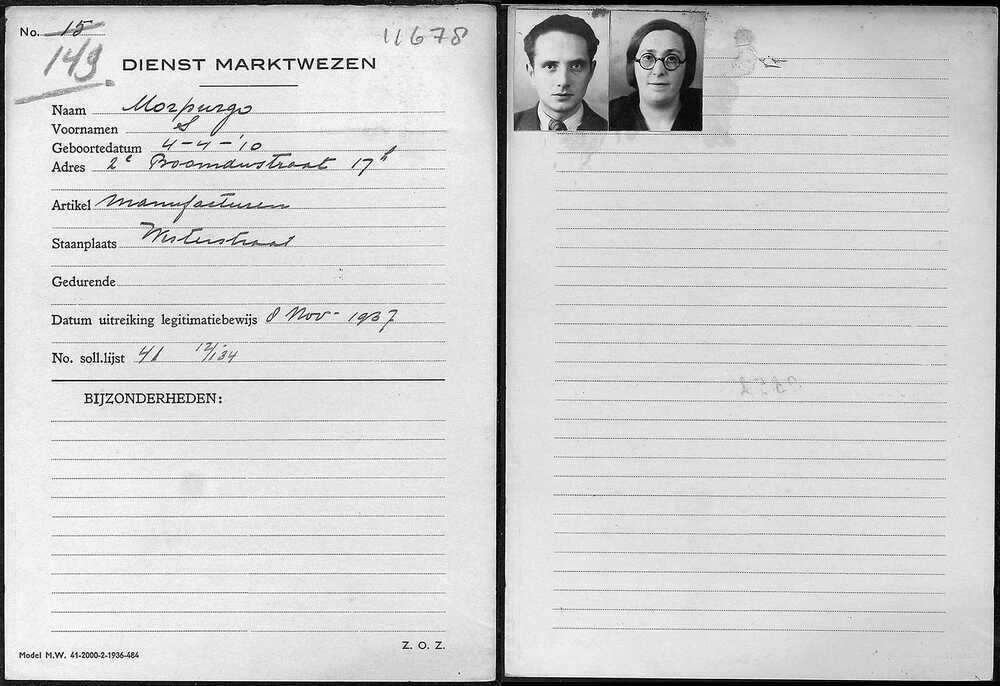 No. 15
11678
149
DIENST MARKTWEZEN
Naam Morpurgo
Voornamen S
Geboortedatum 4-4-'10
Adres 2e Boomdwstraat 17h
Artikel Manufacturen
Staanplaats Westerstraat
Gedurende
Datum uitreiking legitimatiebewijs 8 Nov- 1937
No. soll.lijst 41 12/1'34
BIJZONDERHEDEN:
Z. O. Z.
Model M.W. 41-2000-2-1936-484